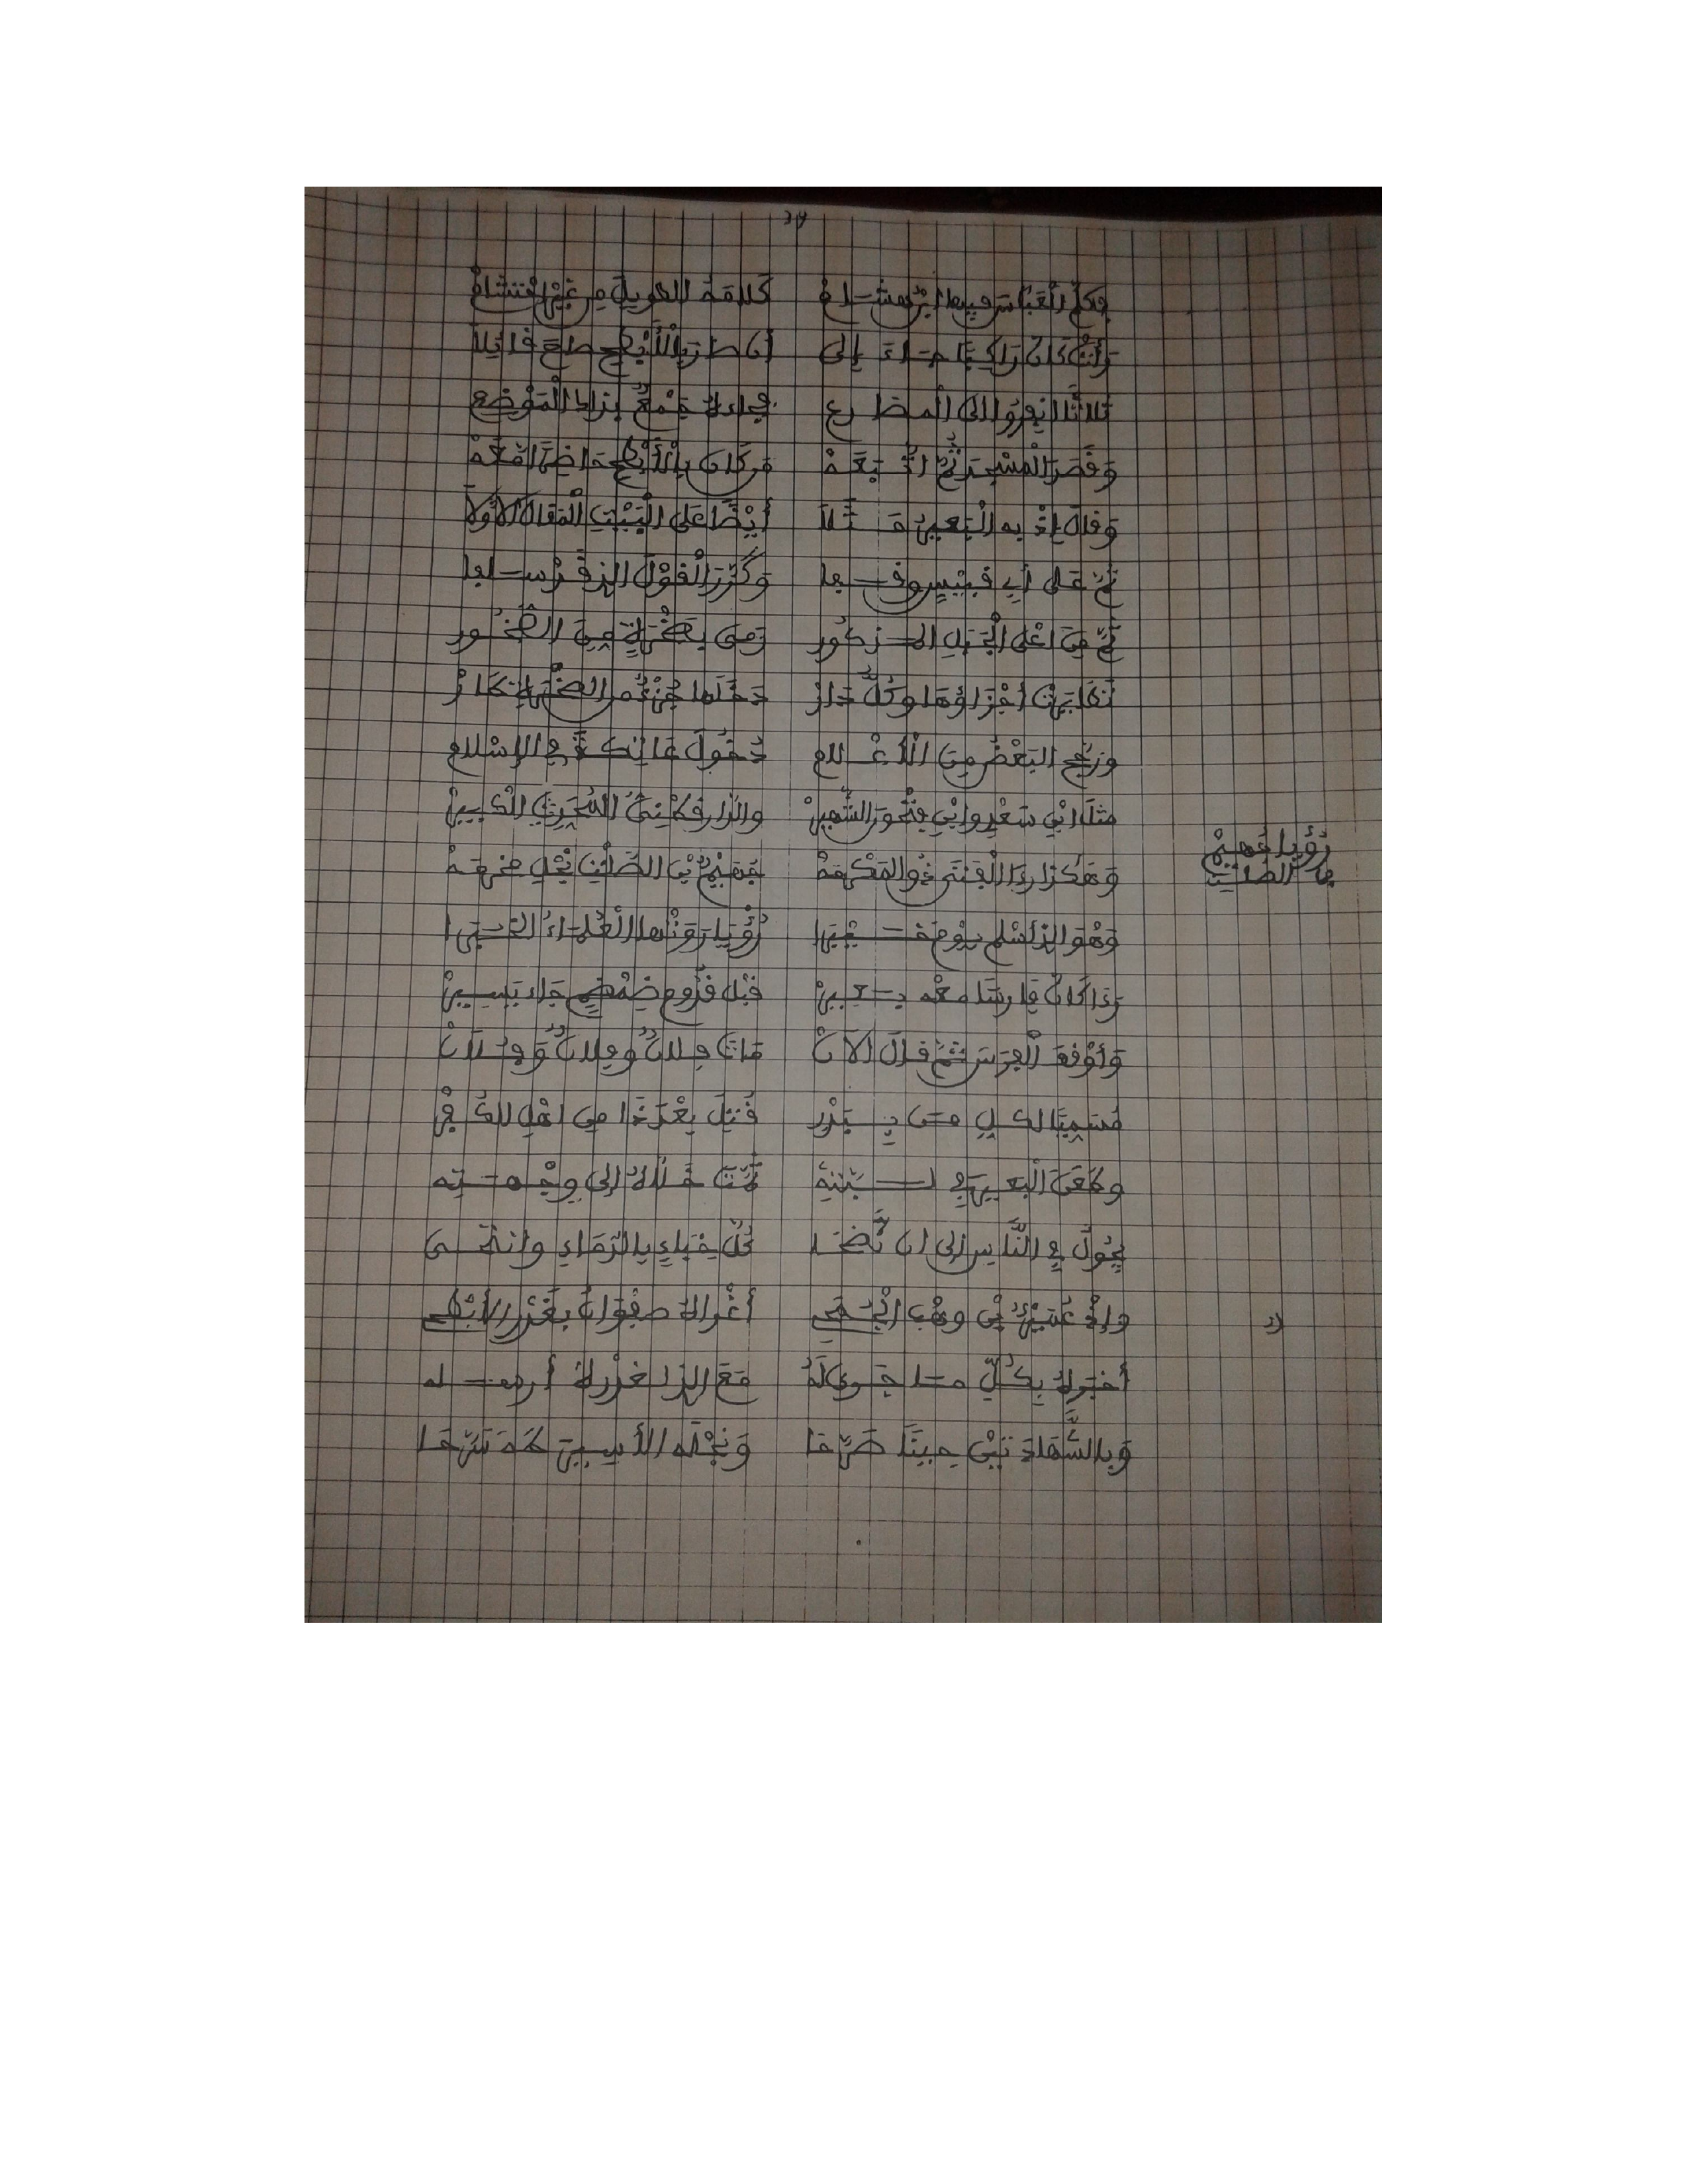 وَكَلَّمَ الْعَبَّاسَ فِيهَا ابْنُ هِشَامْ كَلَامَهُ الطَّوِيلَ مِنْ غَيْرِ احْتِشَامْ
رَأَتْ كَأَنَّ رَاكِبًا جَاءَ إِلَى أَنْ صَارَ بِالْأَبْطَحِ صَاحَ قَائِلَا
ثَلَاثًا انْفِرُوا إِلَى الْمَصَارِعِ فَجَاءَهُ جَمْعٌ بِذَاكَ الْمَوْضِعِ
وَقَصَدَ الْمَسْجِدَ ثُمَّ اتَّبَعَهْ مَنْ كَانَ بِالْأَبْطَحِ حَاضِرًا مَعَهْ
وَقَالَ إِذْ بِهِ الْبَعِيرُ مَثَلَا أَيْضًا عَلَى الْبَيْتِ الْمَقَالَ الْأَوَّلَا
ثُمَّ عَلَى أَبِي قُبَيْسٍ وَقَفَا وَكَرَّرَ الْقَوْلَ الذِي قَدْ سَلَفَا
ثُمَّ مِنَ اعْلَى الْجَبَلِ الْمَذْكُورِ رَمَى بِصَخْرَةٍ مِنَ الصُّخُورِ
تَطَايَرَتْ أَجْزَاؤُهَا وَكُلُّ دَارْ دَخَلَهَا جُزْءٌ مِنَ الصَّخْرِ
وَرَجَّحَ الْبَعْضُ مِنَ الْأَعْلَامِ دُخُولَ عَاتِكَةَ فِي الْإِسْلَامِ
مِثْلَ ابْنِ سَعْدٍ وَابْنِ فَتْحُونَ الشَّهِيرْ وَالدَّارَقُطْنِيِّ الْمُحَدِّثِ الْكَبِيرْ
رُؤْيَا جُهَيْمْ بْنِ الصَّلْتِ
وَهَكَذَا رَأَى الْفَتَى ذُو الْمَكْرُمَهْ جُهَيْمٌ بْنُ الصَّلْتِ نَجْلِ مَخْرَمَهْ
وَهْوَ الذِي أَسْلَمَ يَوْمَ خَيْبَرَا رُؤْيَا رَوَتْهَا الْعُلَمَاءُ
رَأَى كَأَنَّ فَارِسًا مَعْهُ بَعِيرْ قَبْلَ قُدُومِ ضَمْضَمٍ جَاءَ يَسِيرْ
وَأَوْقَفَ الْفَرَسَ ثُمَّ قَالَ الْآنْ مَاتَ فُلَانٌ وَفُلَانٌ وَفُلَانْ
مُسَمِّيًا لِكُلِّ مَنْ بِبَدْرِ قُتِلَ بَعْدَ ذَا مِنَ اهْلِ الْكُفْرِ
وَطَعَنَ الْبَعِيرَ فِي لَبَّتِهِ ثُمَّتَ خَلَّاهُ إِلَى وِجْهَتِهِ
يَجُولُ فِي النَّاسِ إِلَى أَنْ نَضَخَا كُلَّ خِبَاءٍ بِالدِّمَاءِ
وَإِذْ عُمَيْرٌ بْنُ وَهْبِ الْجُمَحِي أَغْرَاهُ صَفْوَانُ بِغَدْرِ الْأَبْطَحِي
أَخْبَرَهُ بِكُلِّ مَا جَرَى لَهُ مَعَ الذِي لِغَدْرِهِ أَرْسَلَهُ
وَبِالشَّهَادَتَيْنِ حِينًا صَرَّحَا وَنَجْلَهُ الْأَسِيرَ طَهَ سَرَّحَا